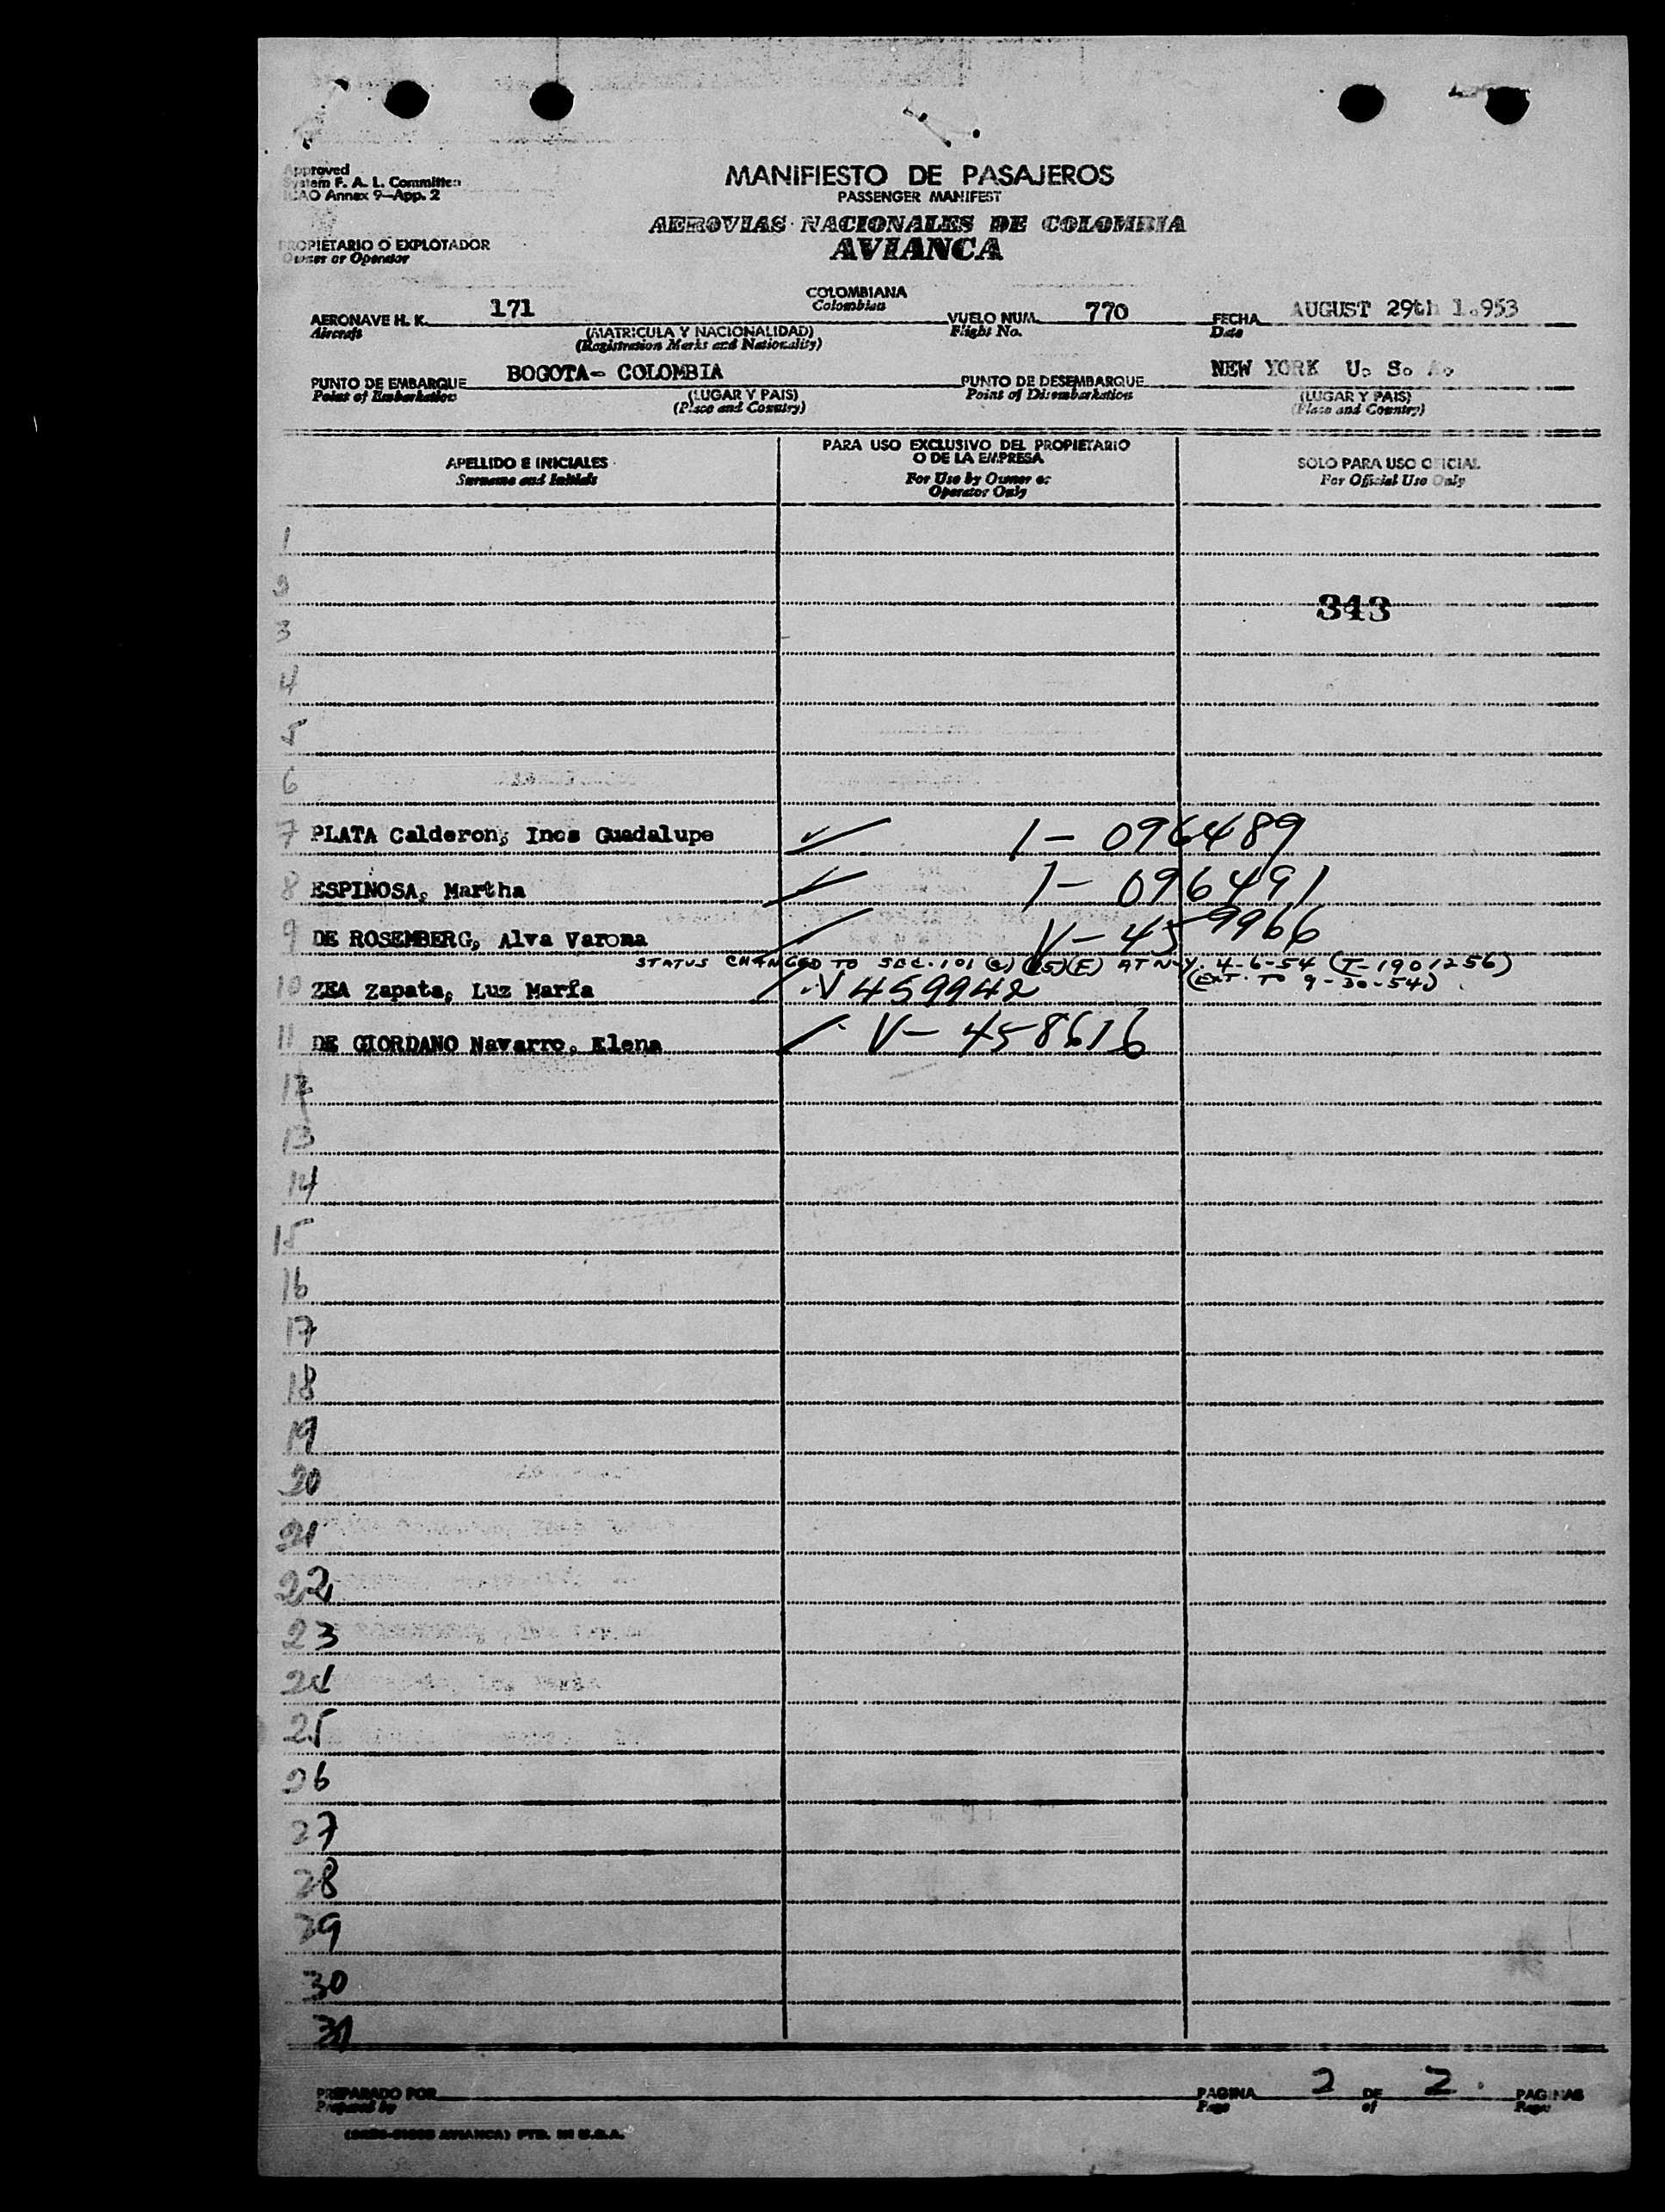 Approved
System F. A. L. Committee
ICAO Annex 9-App. 2
MANIFIESTO DE PASAJEROS
PASSENGER MANIFEST
AEROVIAS NACIONALES DE COLOMBIA
AVIANCA
PROPIETARIO O EXPLOTADOR
Owner or Operator
AERONAVE H. K. 171 COLOMBIANA VUELO NUM. 770 FECHA AUGUST 29th 1.953
Aircraft Colombian Flight No. Date
(MATRICULA Y NACIONALIDAD)
(Registration Marks and Nationality)
PUNTO DE EMBARQUE BOGOTA- COLOMBIA PUNTO DE DESEMBARQUE NEW YORK U. S. A.
Point of Embarkation (LUGAR Y PAIS) Point of Disembarkation (LUGAR Y PAIS)
(Place and Country) (Place and Country)
APELLIDO E INICIALES
Surname and Initials
PARA USO EXCLUSIVO DEL PROPIETARIO
O DE LA EMPRESA
For Use by Owner or
Operator Only
SOLO PARA USO OFICIAL
For Official Use Only
1
2
343
3
4
5
6
7 PLATA Calderon, Ines Guadalupe 1-096489
8 ESPINOSA, Martha 1-096491
9 DE ROSEMBERG, Alva Varona V-459966
STATUS CHANGED TO SEC. 101 (a) (15) (F) AT N.Y. 4-6-54 (T-1901256)
(EXT. TO 9-30-54)
10 ZEA Zapata, Luz María V459942
11 DE GIORDANO Navarro, Elena V-458616
12
13
14
15
16
17
18
19
20
21
22
23
24
25
26
27
28
29
30
31
PREPARADO POR PAGINA 2 DE 2 PAGINAS
Prepared by Page of Pages